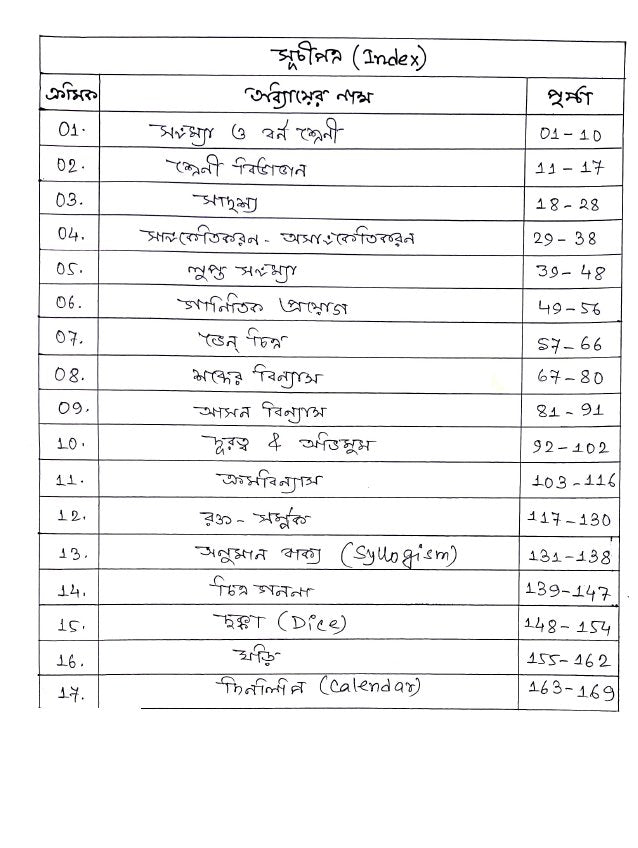 সূচীপত্র (Index)
ক্রমিক অধ্যায়ের নাম পৃষ্ঠা
01. সংখ্যা ও বর্ন শ্রেনী 01-10
02. শ্রেনী বিভাজন 11-17
03. সাদৃশ্য 18-28
04. সাংকেতিকরন - অসাংকেতিকরন 29-38
05. লুপ্ত সংখ্যা 39-48
06. গানিতিক প্রয়োগ 49-56
07. ভেন্ চিত্র 57-66
08. শব্দের বিন্যাস 67-80
09. আসন বিন্যাস 81-91
10. দূরত্ব & অভিমুখ 92-102
11. ক্রমবিন্যাস 103-116
12. রক্ত-সর্ম্পক 117-130
13. অনুমান বাক্য (Syllogism) 131-138
14. চিত্র গননা 139-147
15. ছক্কা (Dice) 148-154
16. ঘড়ি 155-162
17. দিনলিপি (Calendar) 163-169